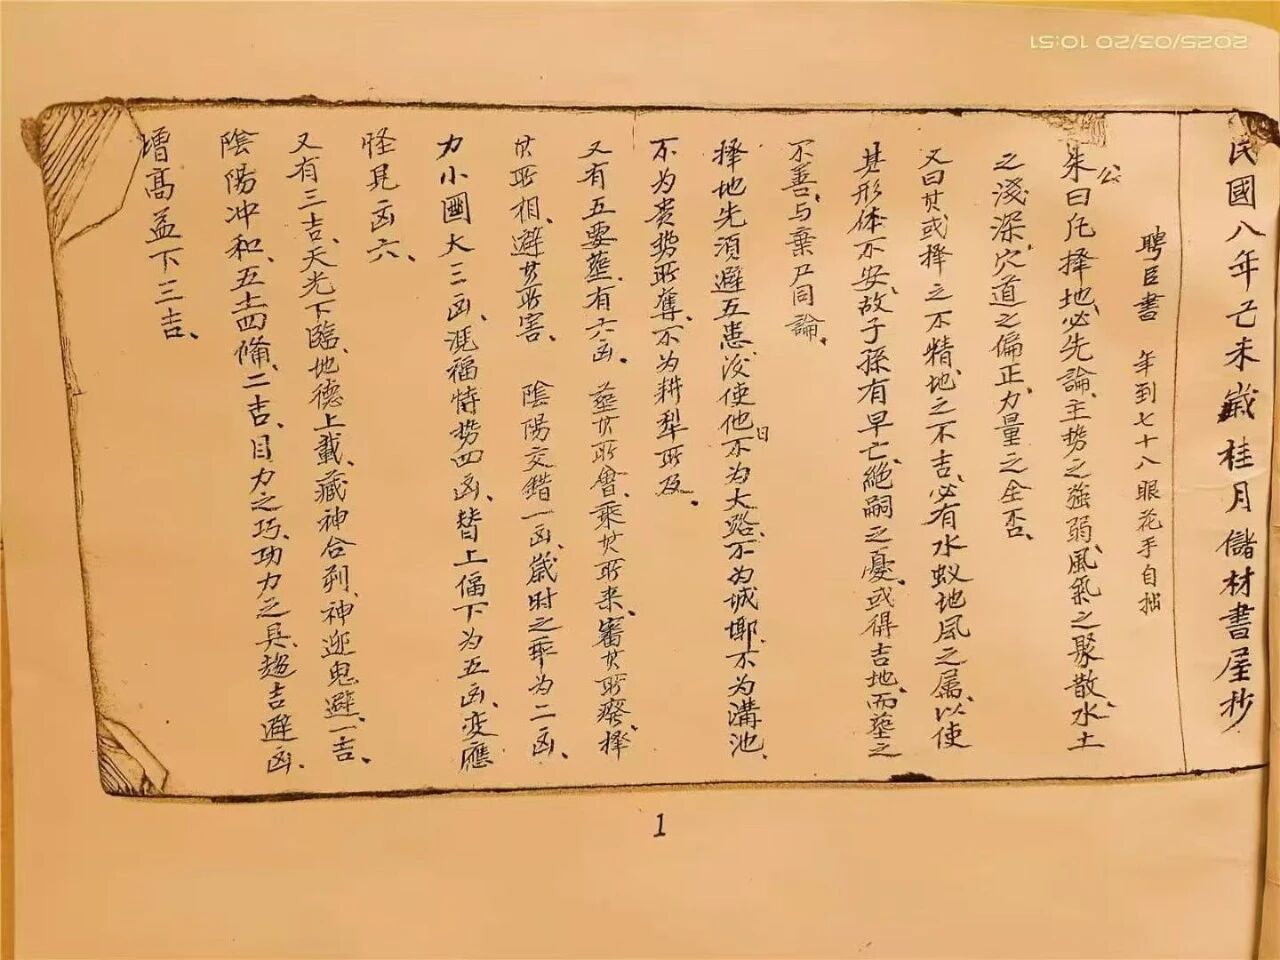 民國八年己未歲桂月儲材書屋抄
聘臣書 年到七十八眼花手自拙
朱公曰凡擇地必先論主勢之強弱風氣之聚散、水土
之淺深、穴道之偏正、力量之全否、
又曰其或擇之不精、地之不吉、必有水蚁地风之屬、以使
其形体不安、故子孫有早亡、絕嗣之憂、或得吉地、而塟之
不善、与棄尸同論、
擇地先須避五患、没使他日不为大路、不为城墎、不为溝池、
不为贵势所奪、不为耕犁所及、
又有五要塟、有六凶、 塟其所會、乘其所来、審其所廢、擇
其所相、避其所害、 陰陽交錯一凶、歲时之乖为二凶、
力小圖大三凶、凴福恃势四凶、替上偪下为五凶、变應
怪見凶六、
又有三吉、天光下臨、地德上載、藏神合朔、神迎鬼避、一吉、
陰陽冲和、五土四備、二吉、目力之巧、功力之具、趋吉避凶、
增高益下三吉、
1
2025/03/20 10:51